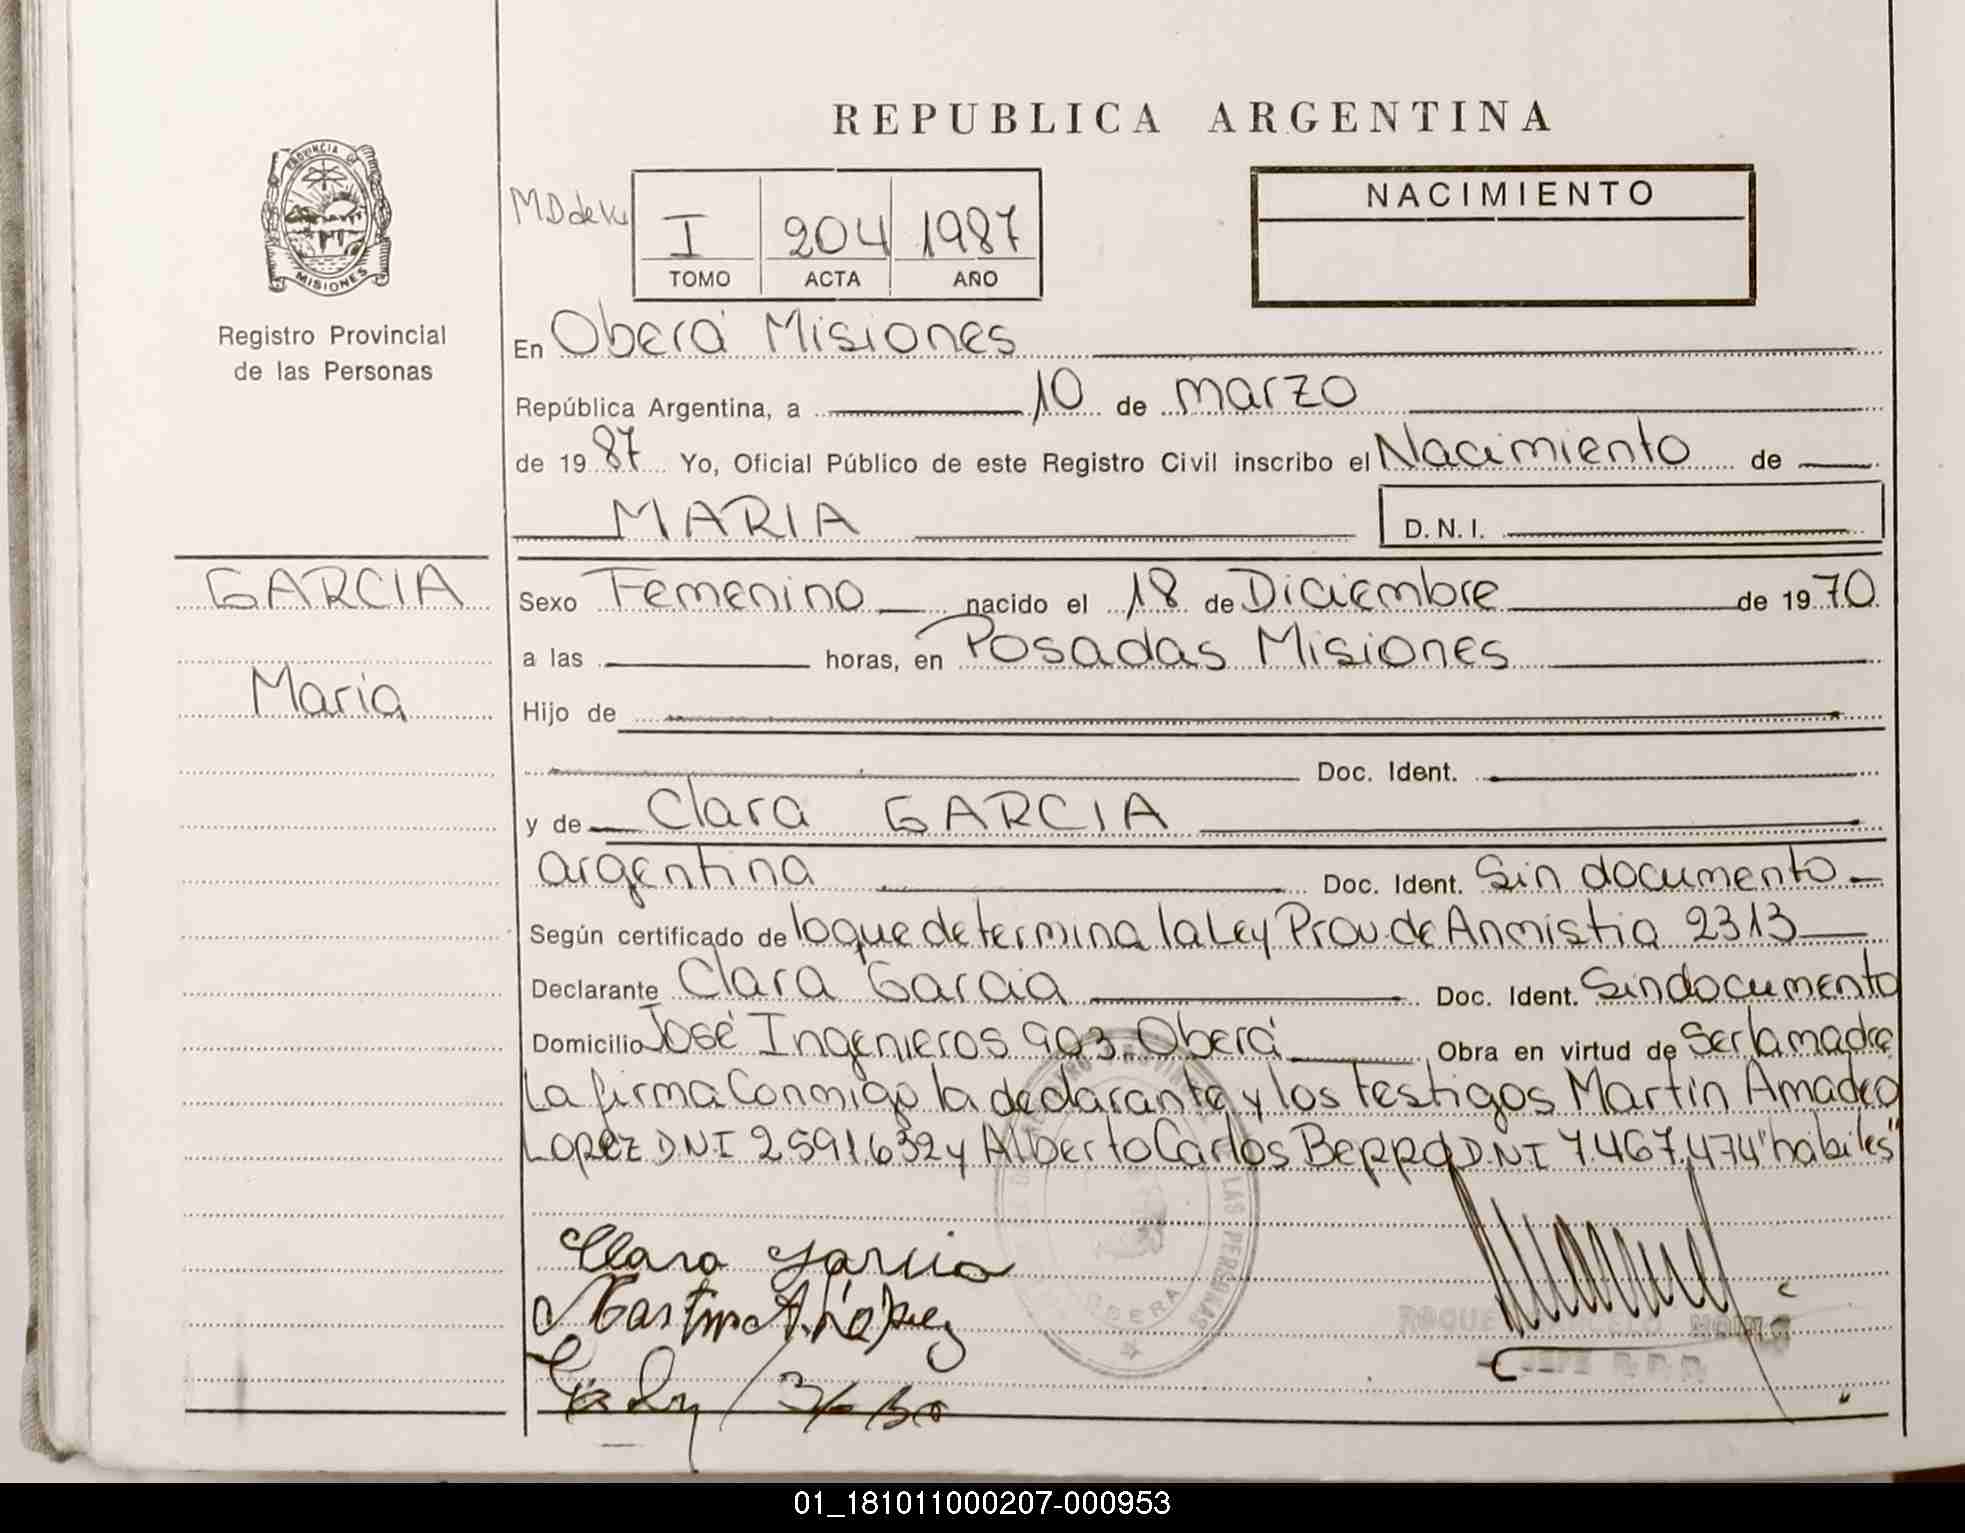 REPUBLICA ARGENTINA
PROVINCIA DE
MISIONES
Registro Provincial
de las Personas
I 204 1987
TOMO ACTA AÑO
NACIMIENTO
En Oberá Misiones
República Argentina, a 10 de marzo
de 1987 Yo, Oficial Público de este Registro Civil inscribo el Nacimiento de
MARIA D.N.I.
GARCIA
Maria
Sexo Femenino nacido el 18 de Diciembre de 1970
a las horas, en Posadas Misiones
Hijo de
Doc. Ident.
y de Clara GARCIA
argentina Doc. Ident. Sin documento
Según certificado de loque determina la Ley Prov. de Anmistia 2313
Declarante Clara Garcia Doc. Ident. Sindocumento
Domicilio José Ingenieros 903 Oberá Obra en virtud de Serlamadre
La firma Conmigo la declarante y los testigos Martín Amadeo
Lopez DNI 2591632 y Alberto Carlos Beppo D.N.I 7.467.474 "habiles"
Clara Garcia
Martin A. López
LAS PERSONAS
OBERA
ROQUE
JEFE R.P.P.
01_181011000207-000953